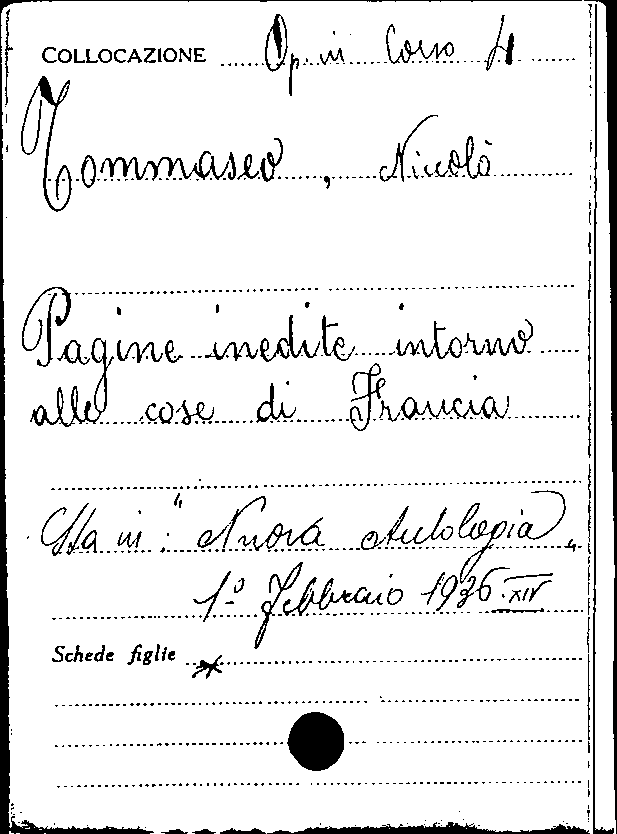 COLLOCAZIONE Op. in Corso 4
Tommaseo, Niccolò
Pagine inedite intorno
alle cose di Francia
Sta in: "Nuova Antologia"
1º Febbraio 1936.XIV
Schede figlie *